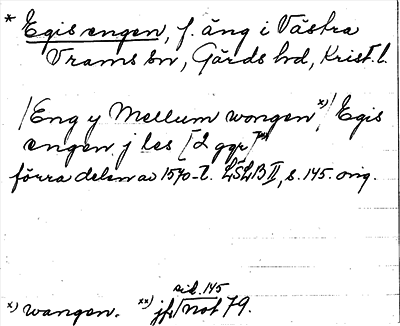 * Egis engen, f. äng i Västra
Vrams sn, Gärds hd, Krist. l.
/Eng y Mellum wongen x)/ Egis
engen j les [2 ggr] xx)
förra delen av 1570-t. LSLB II, s. 145. orig.
sid. 145
x) wangen. xx) jfr not 79.